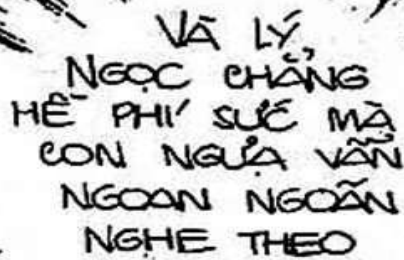 VÀ LÝ
NGỌC CHẲNG
HỀ PHÍ SỨC MÀ
CON NGỰA VẪN
NGOAN NGOÃN
NGHE THEO